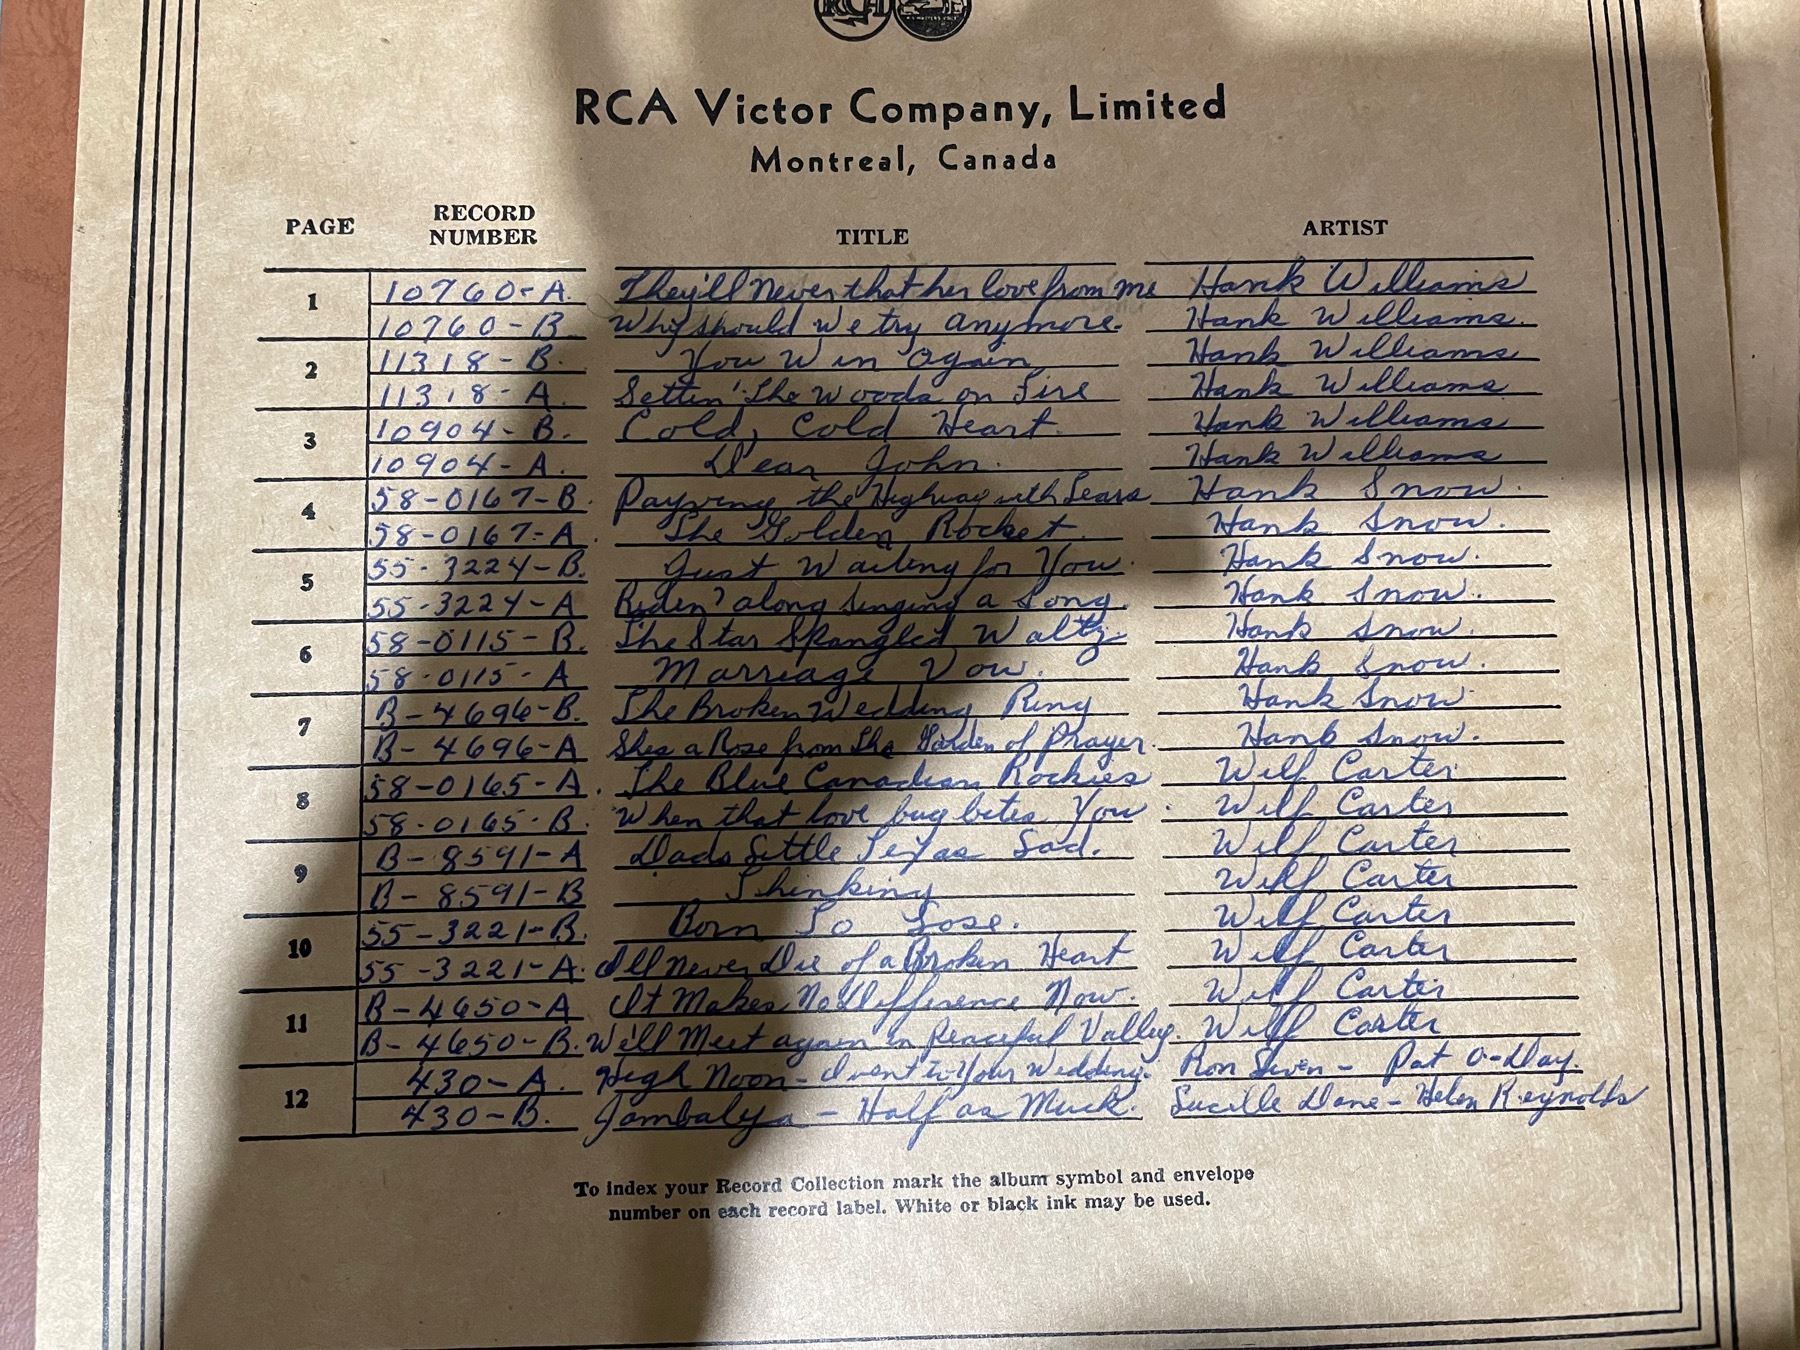 RCA
RCA Victor Company, Limited
Montreal, Canada
PAGE RECORD NUMBER TITLE ARTIST
1 10760-A. They'll Never that her love from me Hank Williams
10760-B Why should we try anymore. Hank Williams.
2 11318-B. You Win Again Hank Williams
11318-A. Settin' the Woods on Fire Hank Williams
3 10904-B. Cold, Cold Heart. Hank Williams
10904-A. Dear John. Hank Williams
4 58-0167-B. Payving the Highway with Tears Hank Snow.
58-0167-A. The Golden Rocket. Hank Snow.
5 55-3224-B. Just Waiting for You. Hank Snow.
55-3224-A Ridin' along singing a Song. Hank Snow.
6 58-0115-B. The Star Spangled Waltz Hank Snow.
58-0115-A Marriage Vow. Hank Snow.
7 B-4696-B. The Broken Wedding Ring Hank Snow.
B-4696-A Shes a Rose from the Garden of Prayer. Hank Snow.
8 58-0165-A. The Blue Canadian Rockies Wilf Carter
58-0165-B. When that love bug bites You. Wilf Carter
9 B-8591-A Dads Little Texas Lad. Wilf Carter
B-8591-B Thinking Wilf Carter
10 55-3221-B. Born To Lose. Wilf Carter
55-3221-A. I'll never Die of a Broken Heart Wilf Carter
11 B-4650-A It Makes No Difference Now. Wilf Carter
B-4650-B. We'll Meet again in Peaceful Valley. Wilf Carter
12 430-A. High Noon - I went to Your Wedding. Ron - Pat O-Day.
430-B. Jambalya - Half as Much. Lucille Dane - Helen Reynolds
To index your Record Collection mark the album symbol and envelope
number on each record label. White or black ink may be used.